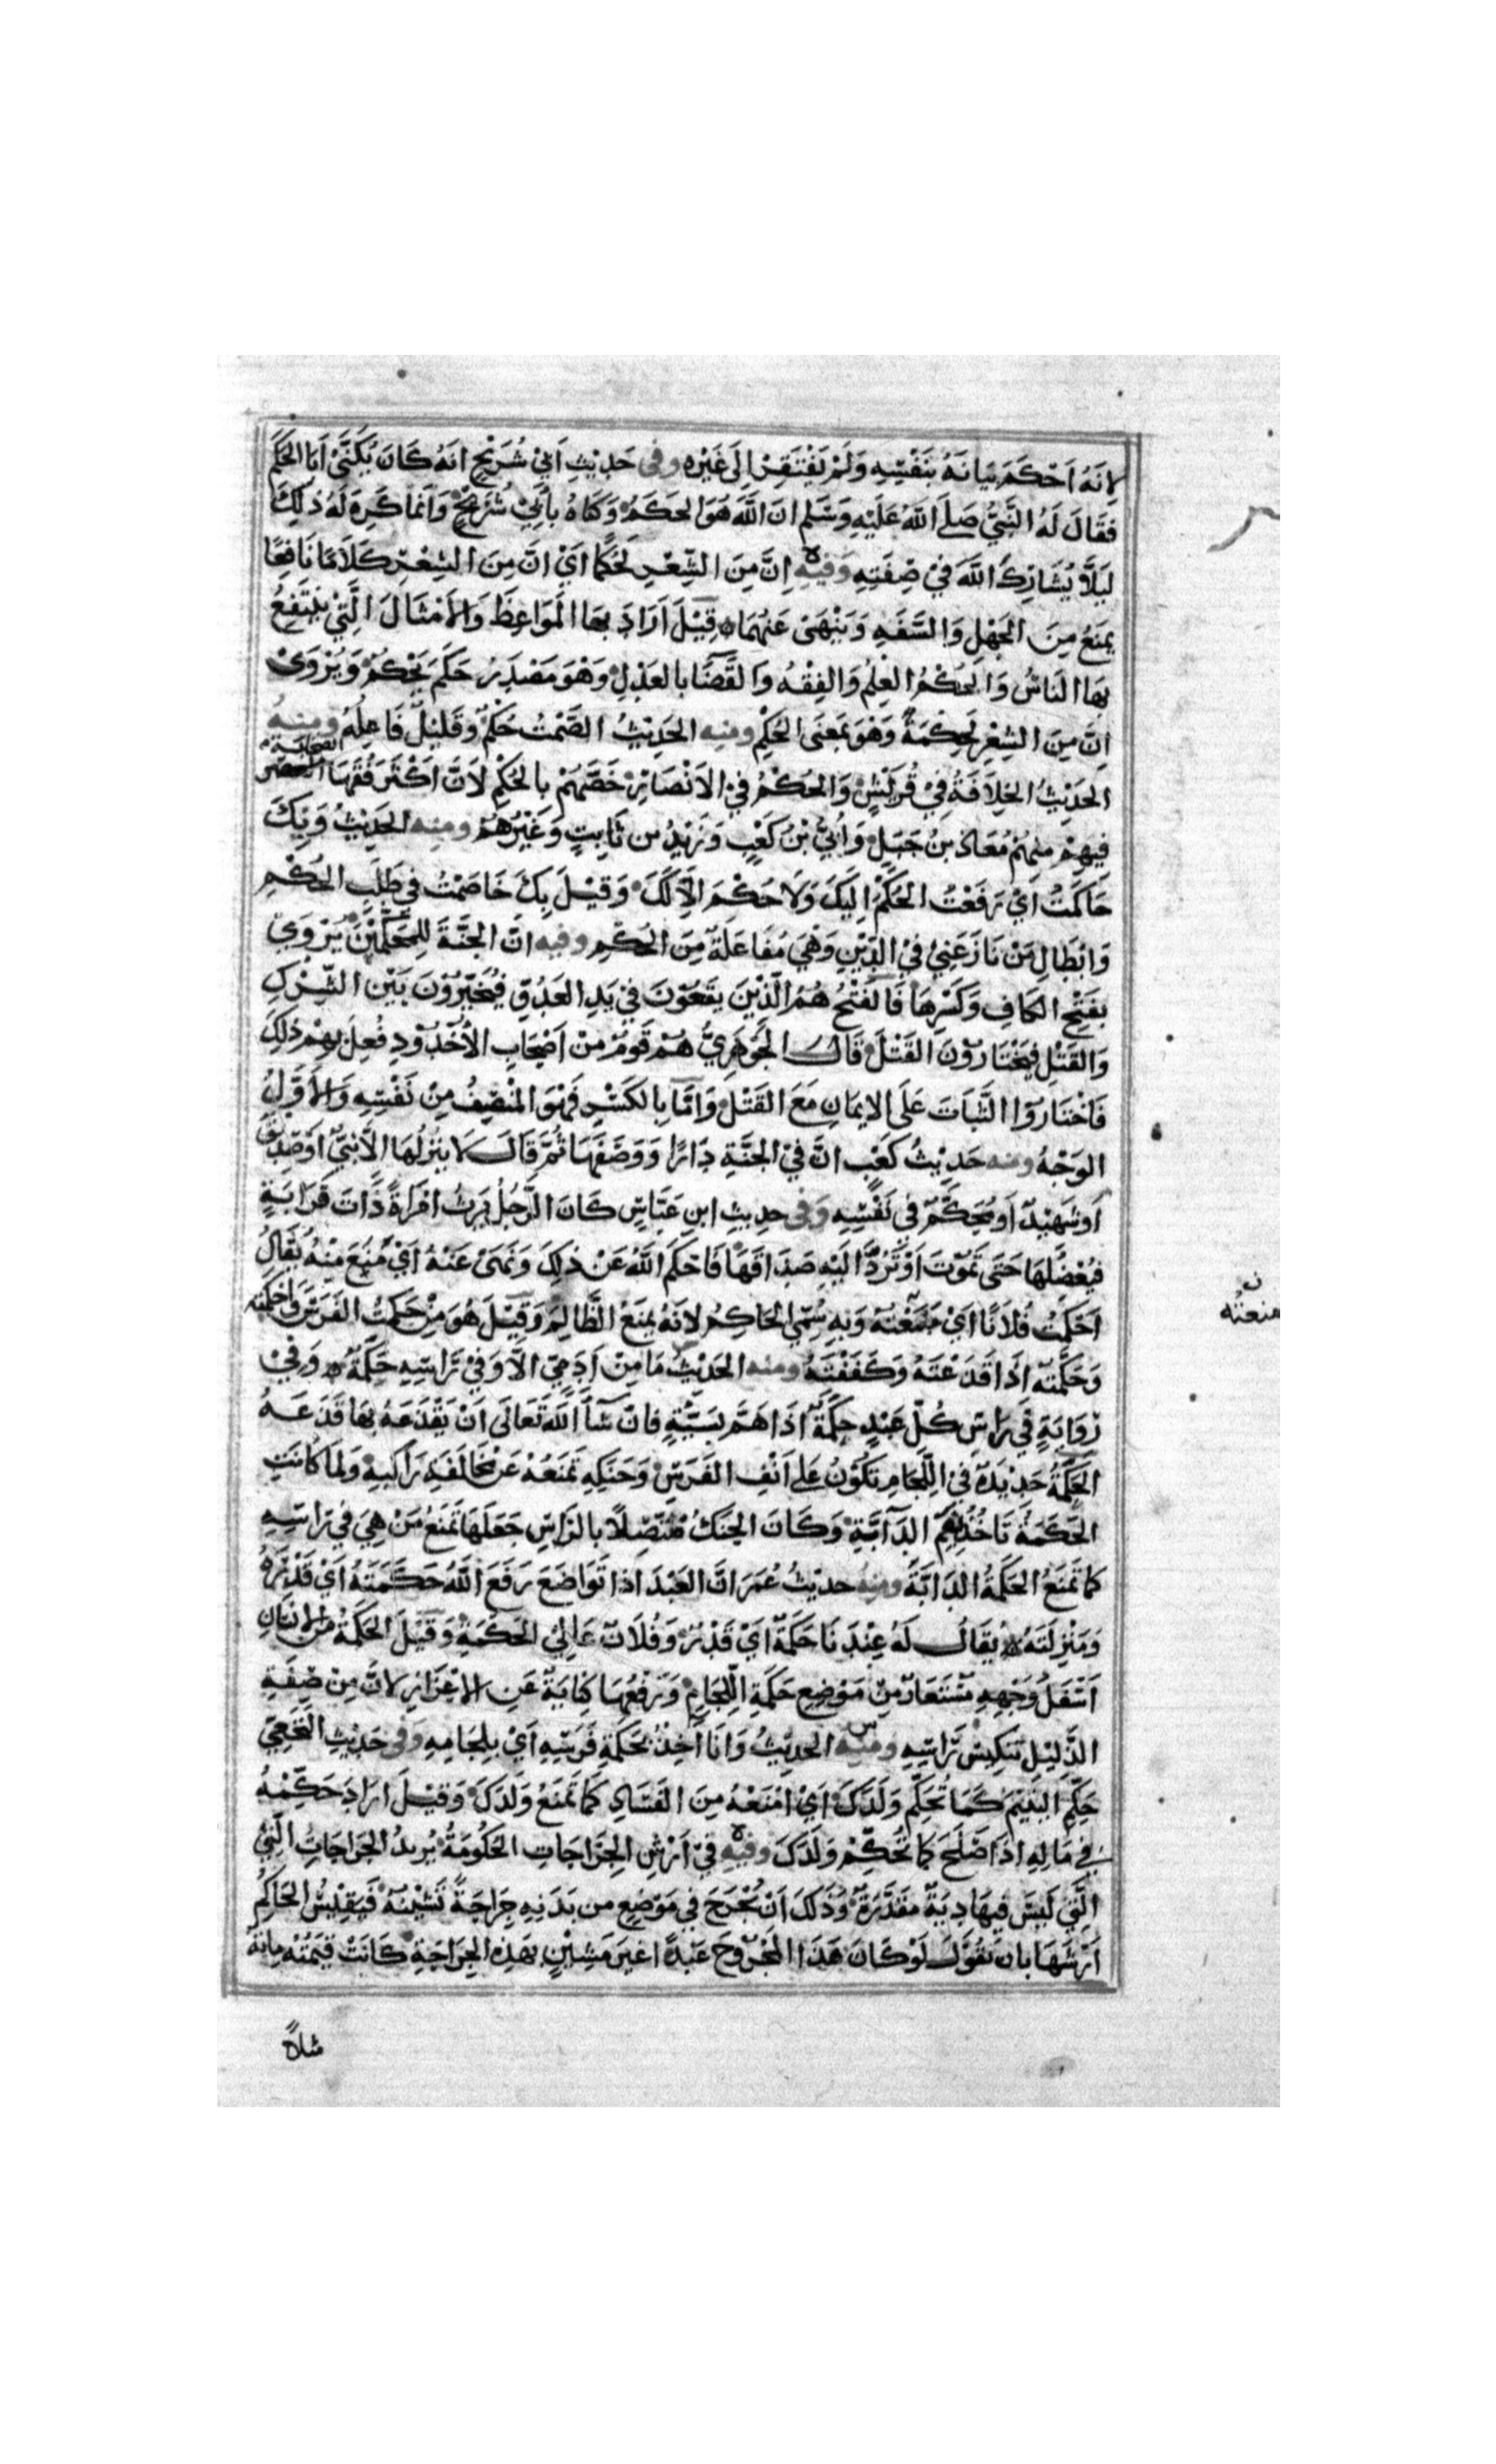 لانه احكم بيانه بنفسه ولم يفتقر الى غيره وفى حديث ابي شريح انه كان يكنى ابا الحكم
فقال له النبي صلى الله عليه وسلم ان الله هو الحكم وكناه بابي شريح وانما كره له ذلك
ليلا يشارك الله في صفته وفيه ان من الشعر لحكما اي ان من الشعر كلاما نافعا
يمنع من الجهل والسفه وينهى عنهما قيل اراد بها المواعظ والامثال التي ينتفع
بها الناس والحكم العلم والفقه والقضا بالعدل وهو مصدر حكم يحكم ويروى
ان من الشعر لحكمة وهو بمعنى الحكم ومنه الحديث الصمت حكم وقليل فاعله ومنه
الحديث الخلافة في قريش والحكم في الانصار خصهم بالحكم لان اكثر فقها الصحابة
فيهم منهم معاذ بن جبل وابي بن كعب وزيد بن ثابت وغيرهم ومنه الحديث وبك
حاكمت اي رفعت الحكم اليك ولا حكم الا لك وقيل بك خاصمت في طلب الحكم
وابطال من نازعني في الدين وهي مفاعلة من الحكم وفيه ان الجنة للمحكمين يروى
بفتح الكاف وكسرها فالفتح هم الذين يقعون في يد العدو فيخيرون بين الشرك
والقتل فيختارون القتل قال الجوهري هم قوم من اصحاب الاخدود فعل بهم ذلك
فاختاروا الثبات على الايمان مع القتل واما بالكسر فهو المنصف من نفسه والاول
الوجه ومنه حديث كعب ان في الجنة دارا ووصفها ثم قال لا ينزلها الا نبي او صديق
او شهيد او محكم في نفسه وفى حديث ابن عباس كان الرجل يرث امراة ذات قرابة
فيعضلها حتى تموت او ترد اليه صداقها فاحكم الله عن ذلك ونهى عنه اي منع منه يقال
احكمت فلانا اي منعته وبه سمي الحاكم لانه يمنع الظالم وقيل هو من حكمت الفرس واحكمته
منعته
وحكمته اذا قدعته وكففته ومنه الحديث ما من ادمي الا وفي راسه حكمة وفي
رواية في راس كل عبد حكمة اذا هم بسيئة فان شا الله تعالى ان يقدعه بها قدعه
الحكمة حديدة في اللجام تكون على انف الفرس وحنكه تمنعه عن مخالفة راكبه ولما كانت
الحكمة تاخذ بفم الدابة وكان الحنك متصلا بالراس جعلها تمنع من هي في راسه
كما تمنع الحكمة الدابة ومنه حديث عمر ان العبد اذا تواضع رفع الله حكمته اي قدره
ومنزلته يقال له عندنا حكمة اي قدر وفلان عالي الحكمة وقيل الحكمة من الانسان
اسفل وجهه مستعار من موضع حكمة اللجام ورفعها كناية عن الاعزاز لان من صفة
الذليل تنكيس راسه ومنه الحديث وانا اخذ بحكمة فرسه اي بلجامه وفى حديث النخعي
حكم اليتيم كما تحكم ولدك اي امنعه من الفساد كما تمنع ولدك وقيل اراد حكمه
في ماله اذا صلح كما تحكم ولدك وفيه في ارش الجراحات الحكومة يريد الجراحات التي
التي ليس فيها دية مقدرة وذلك ان يجرح في موضع من بدنه جراحة تشينه فيقيس الحاكم
ارشها بان يقول لو كان هذا المجروح عبدا غير مشين بهذه الجراحة كانت قيمته ماىة
مثلا